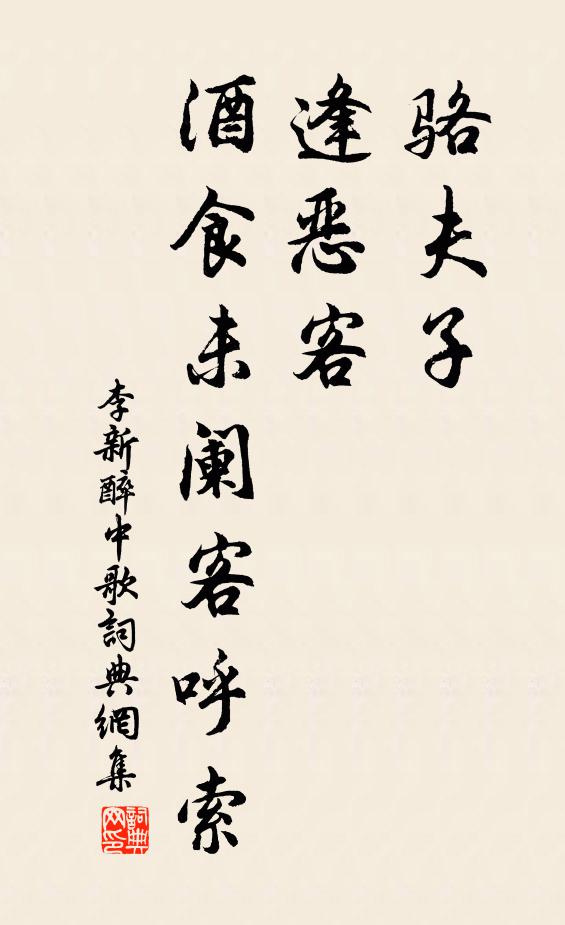 骆夫子
逢恶客
酒食未阑客呼索
李新醉中歌詞典網集
詞典网印